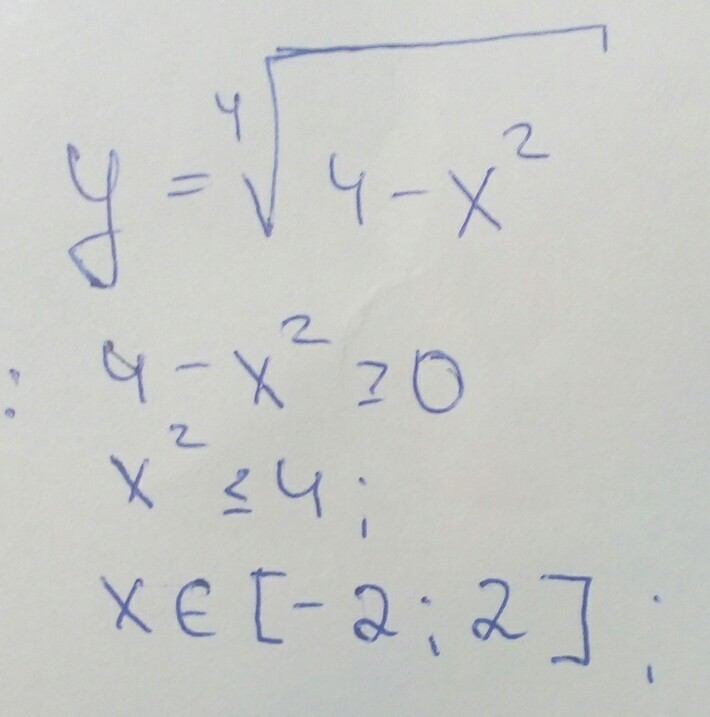 y = ⁴√(4 - x²)
: 4 - x² ≥ 0
x² ≤ 4 ;
x ∈ [- 2 ; 2 ] ;